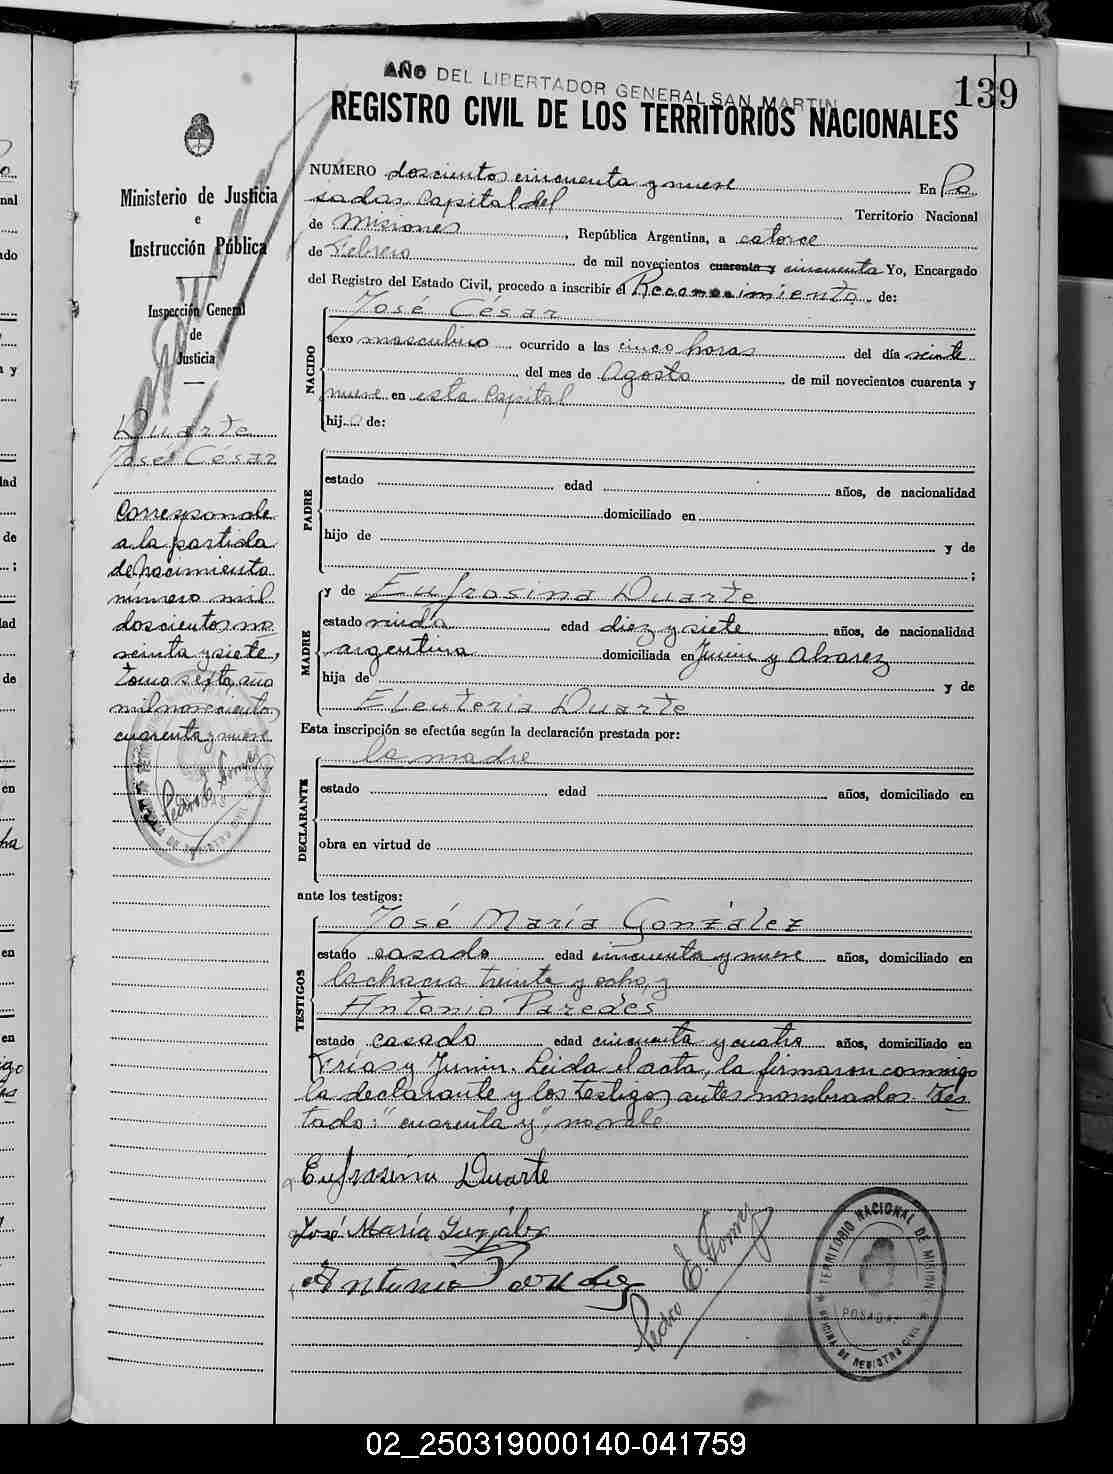 AÑO DEL LIBERTADOR GENERAL SAN MARTIN
139
REGISTRO CIVIL DE LOS TERRITORIOS NACIONALES
Ministerio de Justicia
e
Instrucción Pública
Inspección General
de
Justicia
Duarte
José César
Corresponde
a la partida
de nacimiento
número mil
doscientos no
veinta y siete,
tomo sexto, año
mil novecientos
cuarenta y nueve
Pedro E. Gomez
NUMERO doscientos cincuenta y nueve En Po
sadas Capital del Territorio Nacional
de Misiones, República Argentina, a catorce
de Febrero de mil novecientos cuarenta y cincuenta Yo, Encargado
del Registro del Estado Civil, procedo a inscribir el Reconocimiento, de:
NACIDO
José César
sexo masculino ocurrido a las cinco horas del día veinte
del mes de Agosto de mil novecientos cuarenta y
nueve en esta Capital
hijo de:
PADRE
estado edad años, de nacionalidad
domiciliado en
hijo de y de
;
MADRE
y de Eufrosina Duarte
estado viuda edad diez y siete años, de nacionalidad
argentina domiciliada en Junin y Alvarez
hija de y de
Eleuteria Duarte
Esta inscripción se efectúa según la declaración prestada por:
DECLARANTE
la madre
estado edad años, domiciliado en
obra en virtud de
ante los testigos:
TESTIGOS
José María González
estado casado edad cincuenta y nueve años, domiciliado en
la chacra treinta y ocho, y
Antonio Paredes
estado casado edad cincuenta y cuatro años, domiciliado en
Frías y Junin. Leida el acta, la firmaron conmigo
la declarante y los testigos antes nombrados. Tes
tado: "cuarenta y", no vale.
Eufrasina Duarte
José María González
Antonio Paredez
Pedro E. Gomez
TERRITORIO NACIONAL DE MISIONES
POSADAS
OFICINA DE REGISTRO CIVIL
02_250319000140-041759